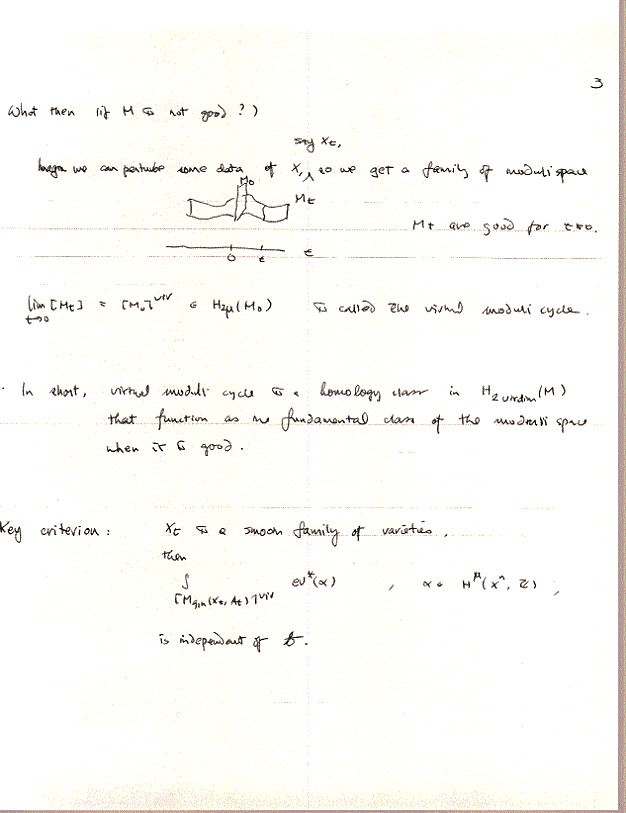 3
What then (if M is not good?)
say Xt,
we can pertube some data of X, λ so we get a family of moduli space
M0
Mt
Mt are good for t≠0.
0 t t
lim [Mt] = [M0]^vir ∈ H2μ(M0) is called the virtual moduli cycle.
t→0
· In short, virtual moduli cycle is a homology class in H2 virdim (M)
that function as the fundamental class of the moduli space
when it is good.
Key criterion: Xt is a smooth family of varieties,
then
∫ ev*(α) , α ∈ H^μ(X^n, Z),
[Mg,n(Xt, At)]^vir
is independent of t.